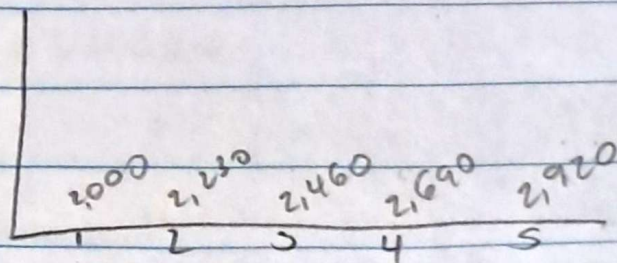 2,000 2,230 2,460 2,690 2,920
1 2 3 4 5